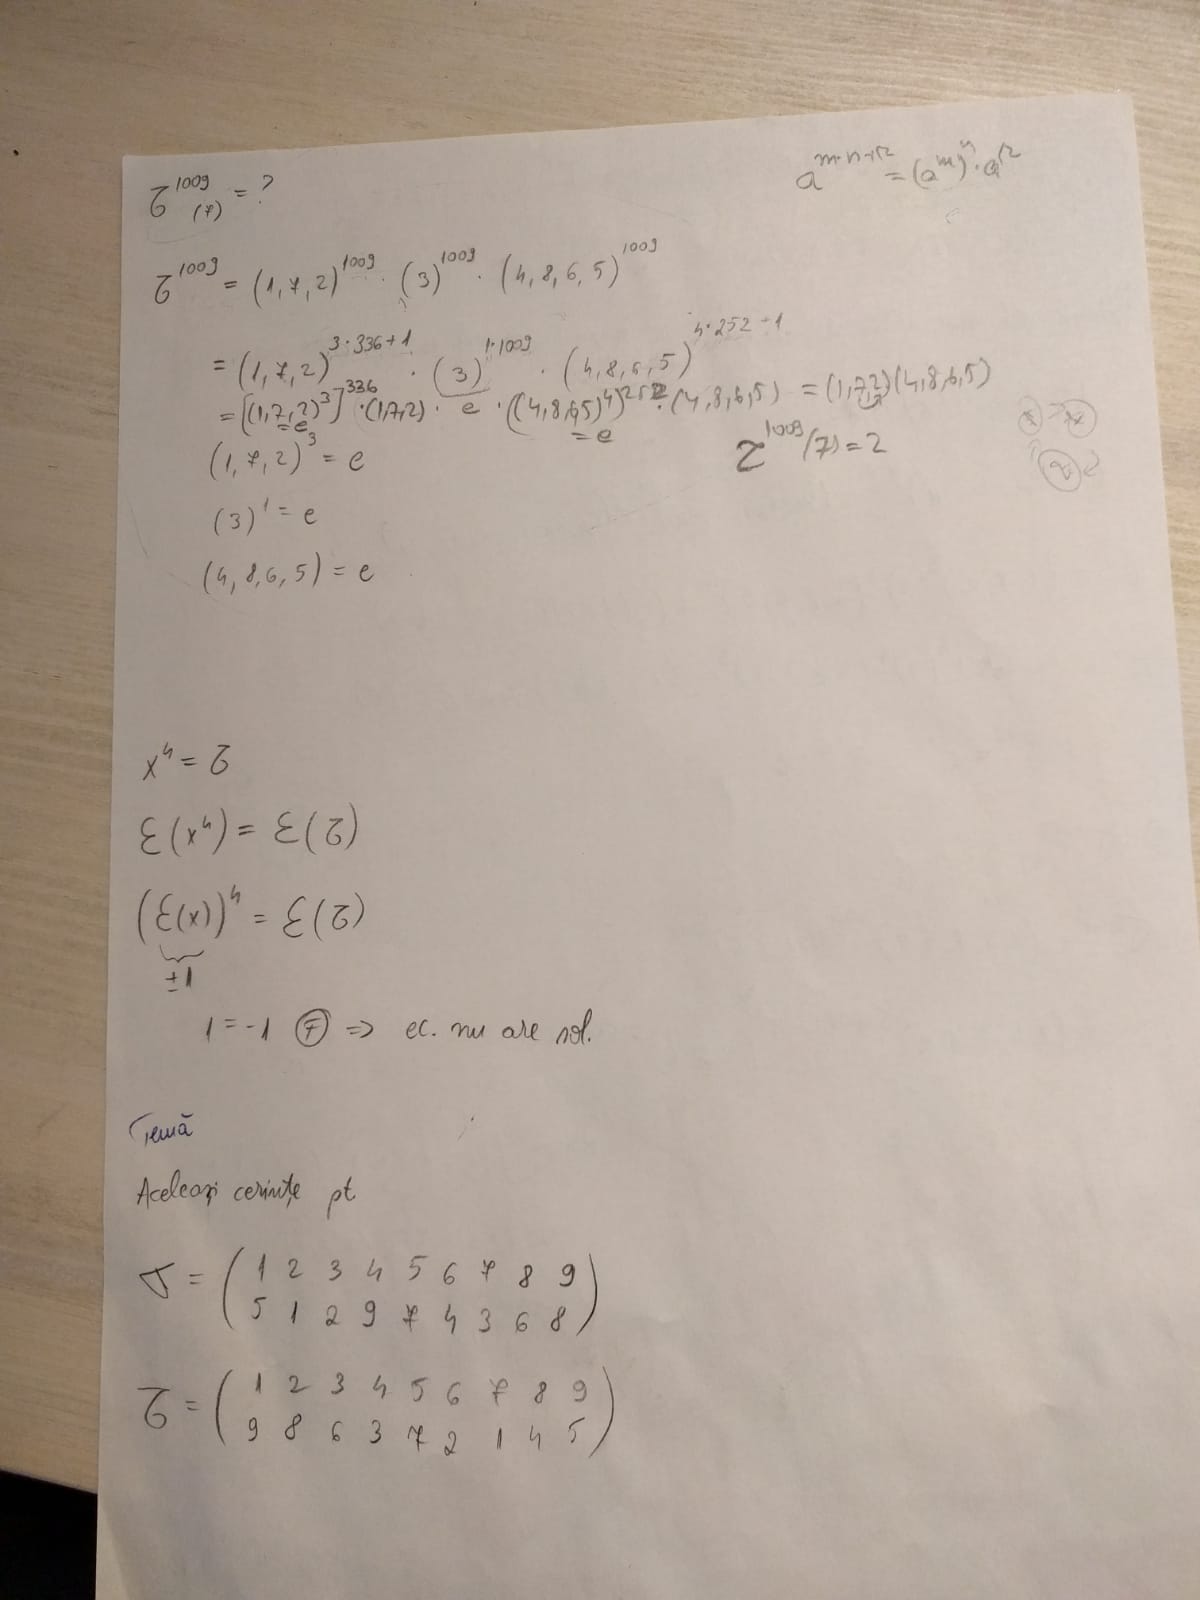 τ^1009 (7) = ?
a^(m·n+r) = (a^m)^n · a^r
τ^1009 = (1,7,2)^1009 · (3)^1009 · (4,8,6,5)^1009
= (1,7,2)^(3·336+1) · (3)^(1·1009) · (4,8,6,5)^(4·252+1)
= [(1,7,2)^3]^336 · (1,7,2) · e · ((4,8,6,5)^4)^252 · (4,8,6,5) = (1,7,2)(4,8,6,5)
= e
= e
τ^1009 (7) = 2
(1,7,2)^3 = e
(3)^1 = e
(4,8,6,5) = e
x^4 = τ
ε(x^4) = ε(τ)
(ε(x))^4 = ε(τ)
±1
1 = -1 (F) => ec. nu are sol.
Temă
Aceleași cerințe pt
σ = ( 1 2 3 4 5 6 7 8 9
5 1 2 9 7 4 3 6 8 )
τ = ( 1 2 3 4 5 6 7 8 9
9 8 6 3 7 2 1 4 5 )